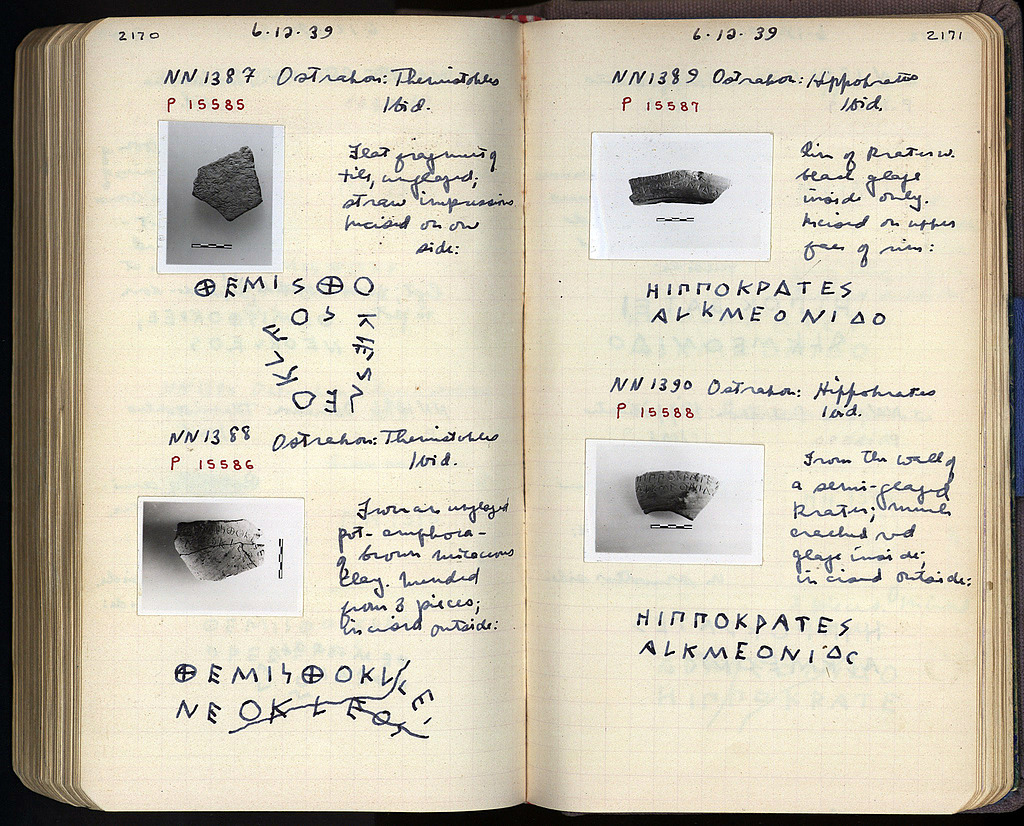 2170
6·12·39
NN1387 Ostrakon: Themistokles
P 15585
Ibid.
Flat fragment of
tile, unglazed;
straw impressions
Incised on one
side:
ΘEMISΘO
KLES
NEO
KLEOS
NN1388 Ostrakon: Themistokles
P 15586
Ibid.
From an unglazed
pot - amphora -
of brown micaceous
clay. Mended
from 3 pieces;
incised outside:
ΘEMISΘOKLE
NEOKLEOS
6·12·39
2171
NN1389 Ostrakon: Hippokrates
P 15587
Ibid.
Rim of krater w.
black glaze
inside only.
Incised on upper
face of rim:
HIΠΠOKPATES
ALKMEONIΔO
NN1390 Ostrakon: Hippokrates
P 15588
Ibid.
From the wall of
a semi-glazed
krater; much
cracked red
glaze inside;
incised outside:
HIΠΠOKPATES
ALKMEONIΔ